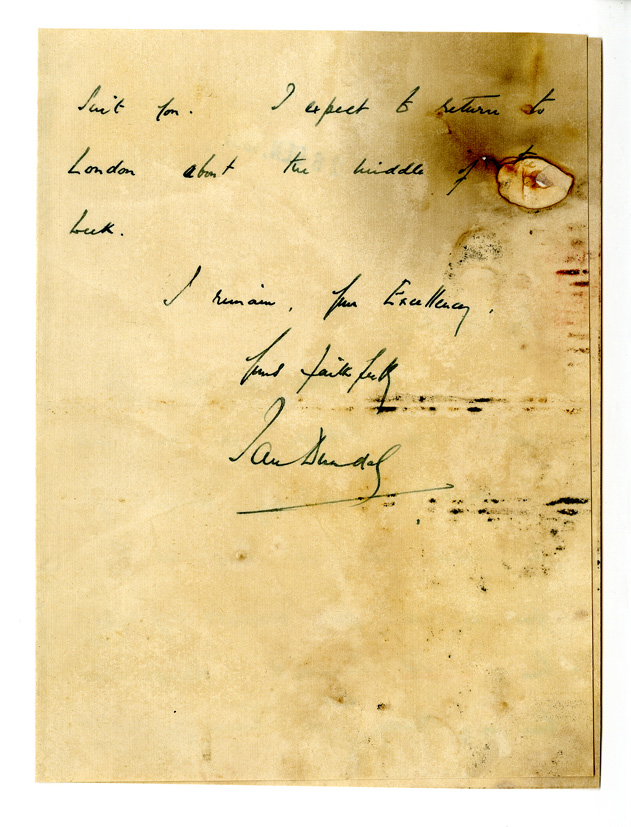 suit you. I expect to return to
London about the middle of
week.
I remain, your Excellency,
yours faithfully
Ian